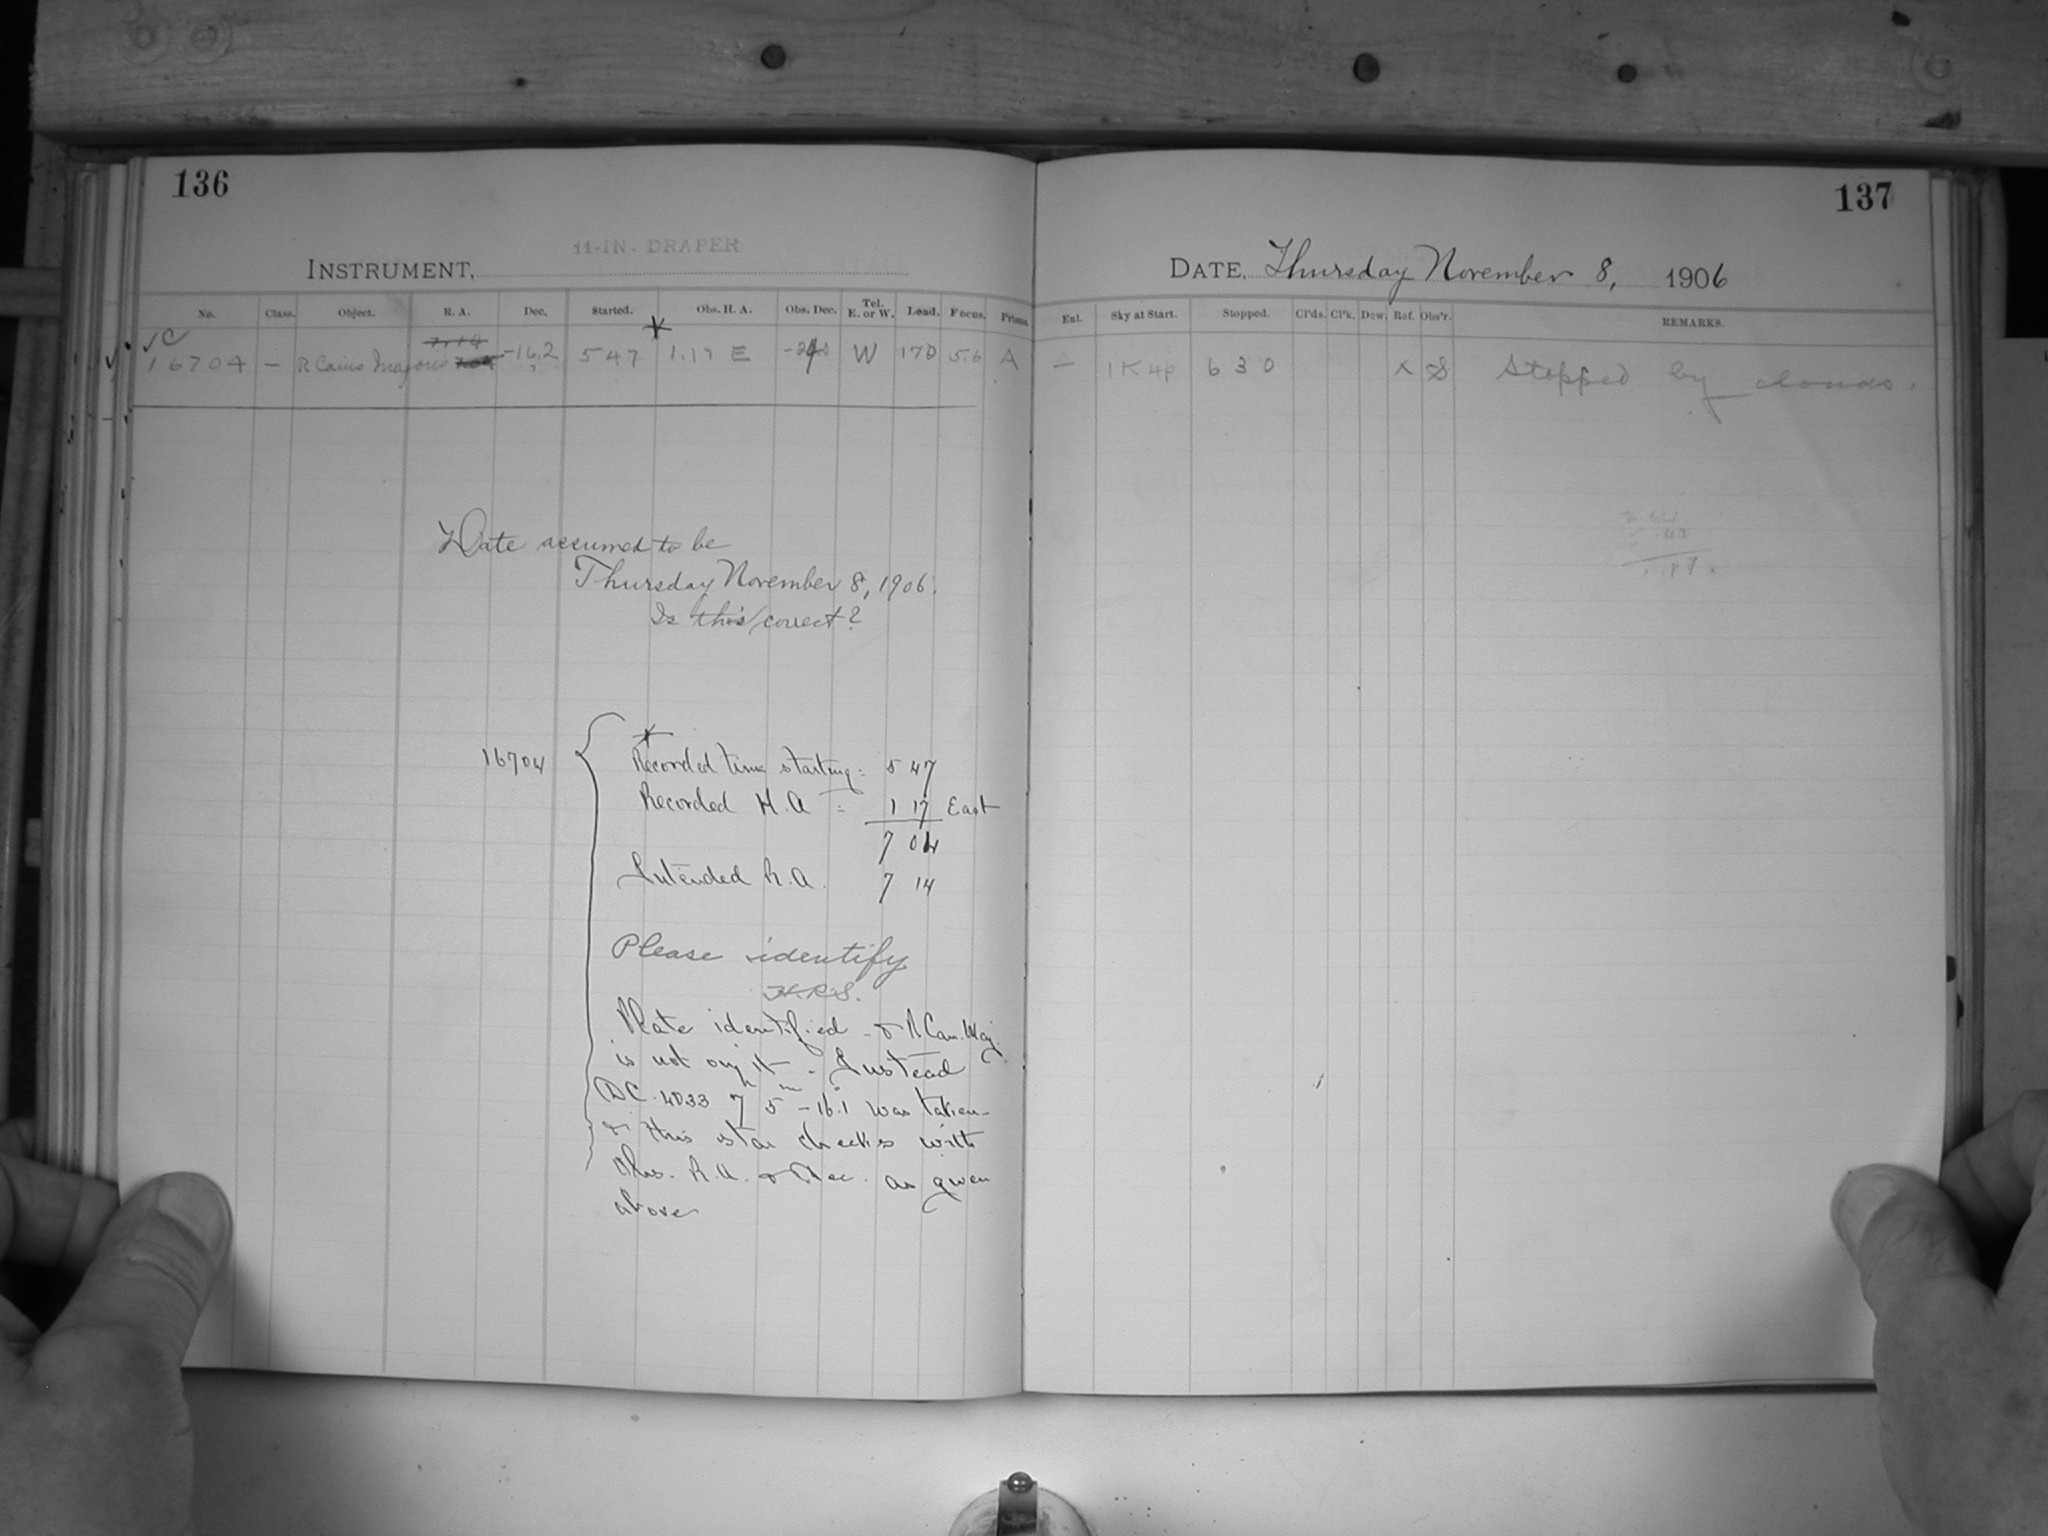 136
137
11-IN. DRAPER
INSTRUMENT,
DATE, Thursday November 8, 1906
No. Class. Object. R. A. Dec. Started. Obs. H. A. Obs. Dec. Tel. E. or W. Load. Focus. Prisms.
Eul. Sky at Start. Stopped. Cl'ds. Cl'k. Dew. Ref. Obs'r. REMARKS.
√C
7.14
16704 — R Canis Majoris -16.2 547 1.17 E W 170 5.6 A — 630 X S Stopped by clouds.
Date assumed to be
Thursday November 8, 1906.
Is this correct?
16704
Recorded time starting = 5 47
Recorded H.A = 1 17 East
7 04
Intended R.A. 7 14
Please identify
H.R.S.
Plate identified - & R Can. Maj.
is not on it - Instead
DC. 4033 7h 5m -16°.1 was taken -
& this star checks with
Obs. R.A. & Dec. as given
above